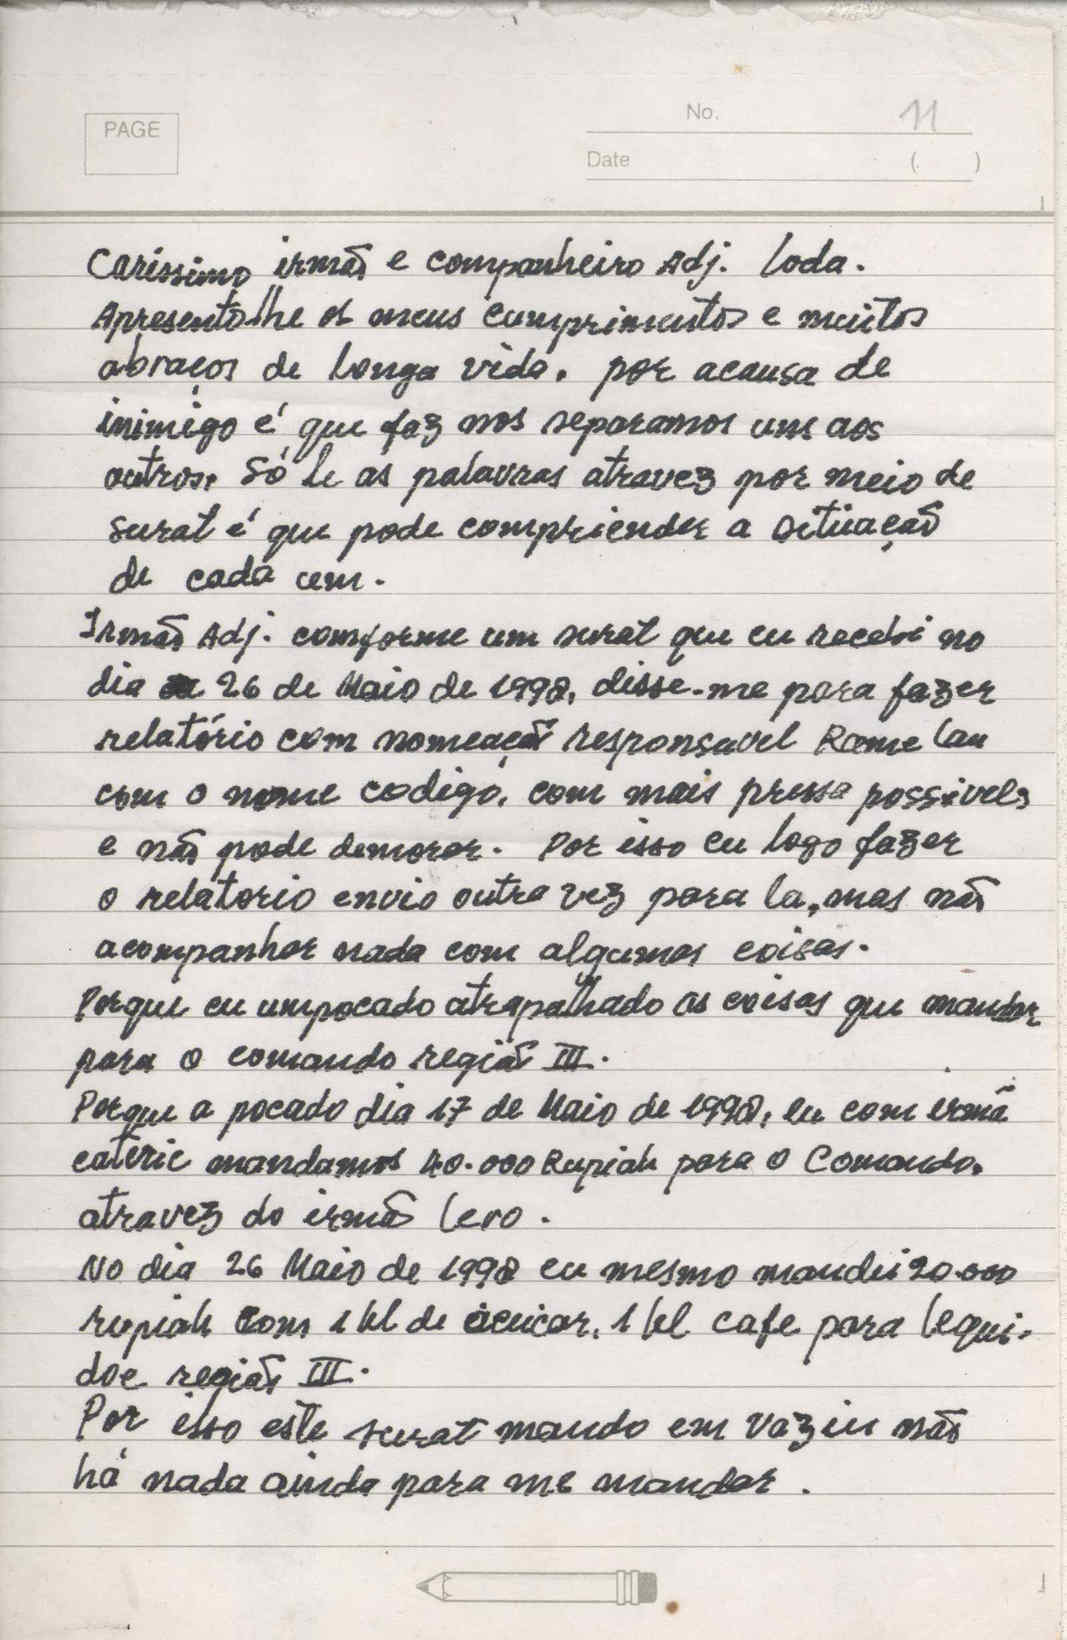 PAGE
No. 11
Date ( )
Caríssimo irmão e companheiro Adj. Loda.
Apresento lhe os meus cumprimentos e muitos
abraços de longa vida. por acausa de
inimigo é que faz nos separamos um aos
outros. Só le as palavras atravez por meio de
surat é que pode compriender a situação
de cada um.
Irmão Adj. comforme um surat que eu recebi no
dia 26 de Maio de 1998, disse-me para fazer
relatório com nomeação responsavel Rame Lau
com o nome codigo, com mais pressa possivels
e não pode demorar. Por isso eu logo fazer
o relatorio envio outra vez para la, mas não
acompanhar nada com algumas coisas.
Porque eu umpocado atrapalhado as coisas que mandar
para o comando região III.
Porque a pocado dia 17 de Maio de 1998, eu com irmã
cateric mandamos 40.000 Rupiah para o Comando,
atravez do irmão Lero.
No dia 26 Maio de 1998 eu mesmo mandei 20.000
rupiah com 1 kl de acucar, 1 kl cafe para Lequi-
doe região III.
Por isso este surat mando em vaziu não
há nada ainda para me mandar.